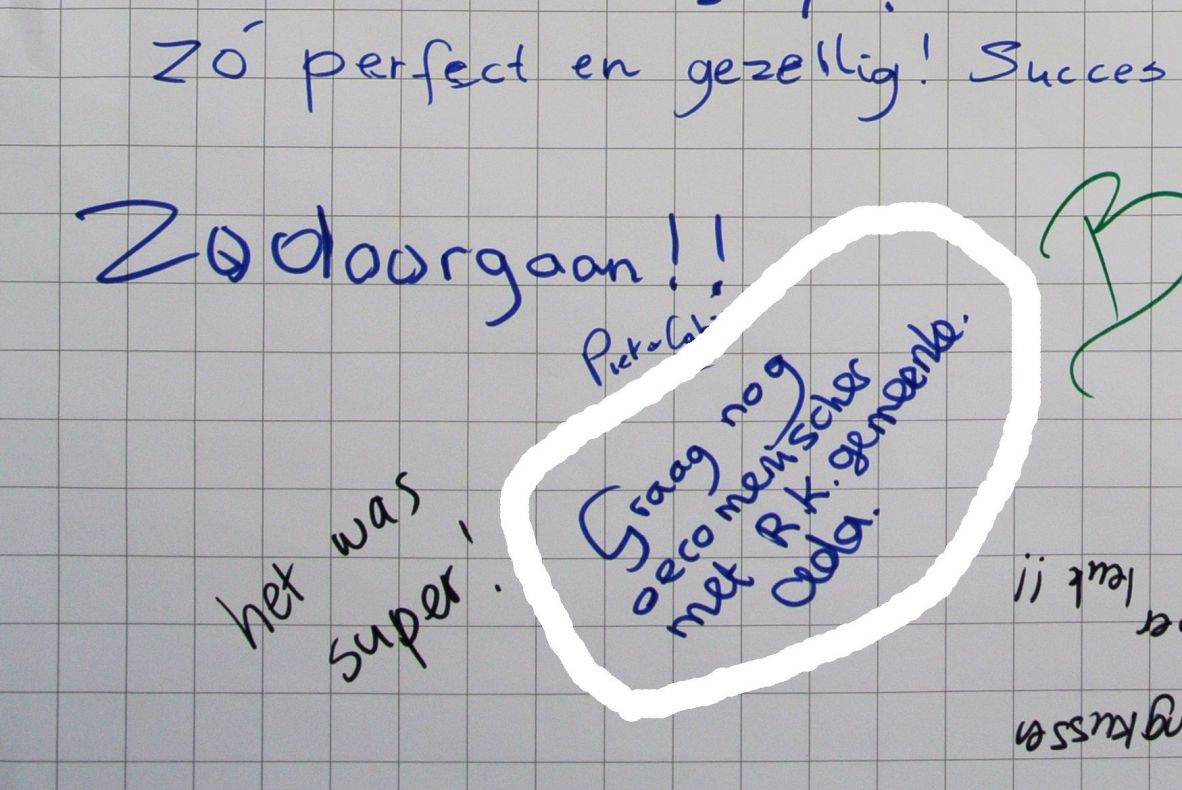 zó perfect en gezellig! Succes
Zodoorgaan!!
Graag nog
oecomenischer
met R.K. gemeente.
Ada.
het was
super!
leuk!!